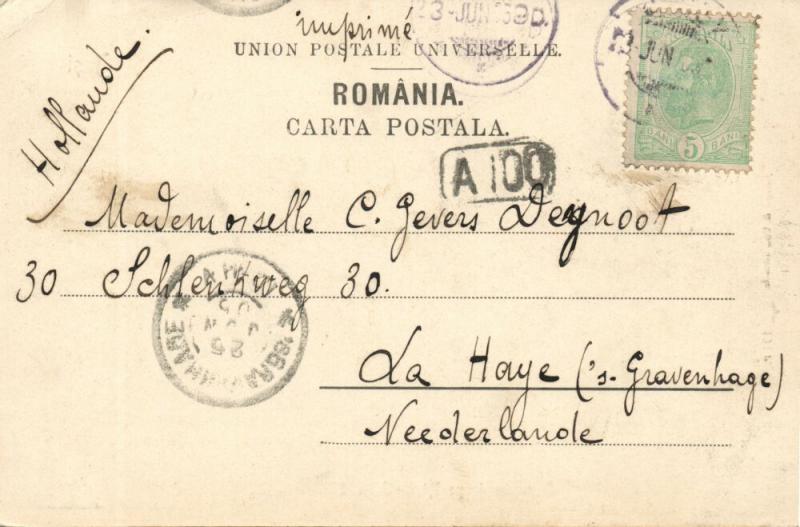 imprimé
UNION POSTALE UNIVERSELLE.
ROMÂNIA.
CARTA POSTALA.
Hollande.
23-JUN
3-JUN
5
BANI BANI
A 100
Mademoiselle C. Gevers Deynoot
30 Schlenkweg 30.
'SGRAVENHAGE
25
JUN
La Haye ('s-Gravenhage)
Neederlande